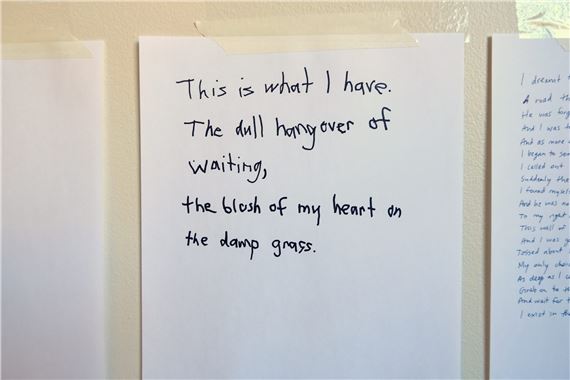 This is what I have.
The dull hangover of
waiting,
the blush of my heart on
the damp grass.
I dreamt
A road th
He was forg
And I was t
And as more
I began to
I called out
Suddenly the
I found mysel
And he was no
To my right
This wall of
And I was g
Tossed about
My only cho
As deep as I c
Grab on to th
And wait for t
I exist in the